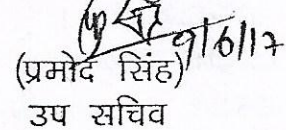 9/6/17
(प्रमोद सिंह)
उप सचिव